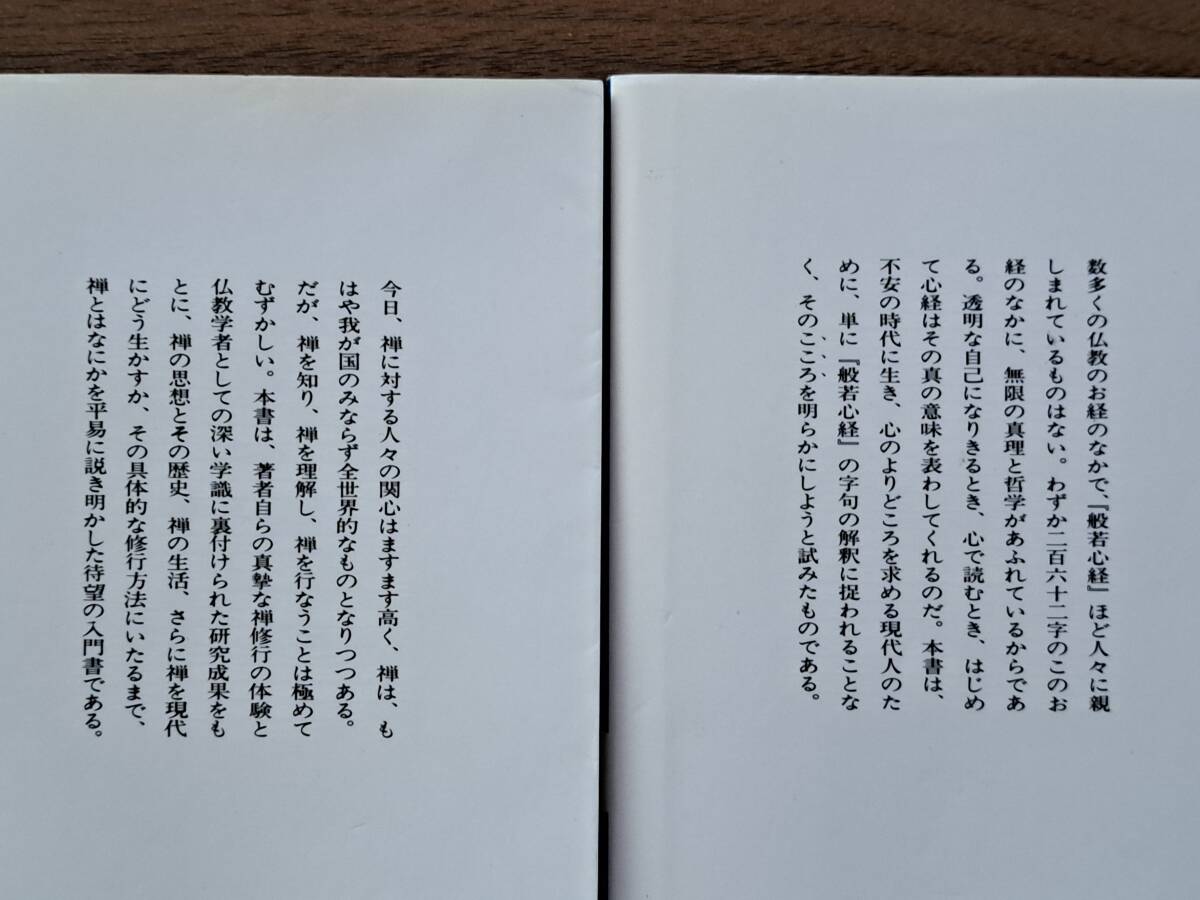 数多くの仏教のお経のなかで、『般若心経』ほど人々に親
しまれているものはない。わずか二百六十二字のこのお
経のなかに、無限の真理と哲学があふれているからであ
る。透明な自己になりきるとき、心で読むとき、はじめ
て心経はその真の意味を表わしてくれるのだ。本書は、
不安の時代に生き、心のよりどころを求める現代人のた
めに、単に『般若心経』の字句の解釈に捉われることな
く、そのこころを明らかにしようと試みたものである。
今日、禅に対する人々の関心はますます高く、禅は、も
はや我が国のみならず全世界的なものとなりつつある。
だが、禅を知り、禅を理解し、禅を行なうことは極めて
むずかしい。本書は、著者自らの真摯な禅修行の体験と
仏教学者としての深い学識に裏付けられた研究成果をも
とに、禅の思想とその歴史、禅の生活、さらに禅を現代
にどう生かすか、その具体的な修行方法にいたるまで、
禅とはなにかを平易に説き明かした待望の入門書である。